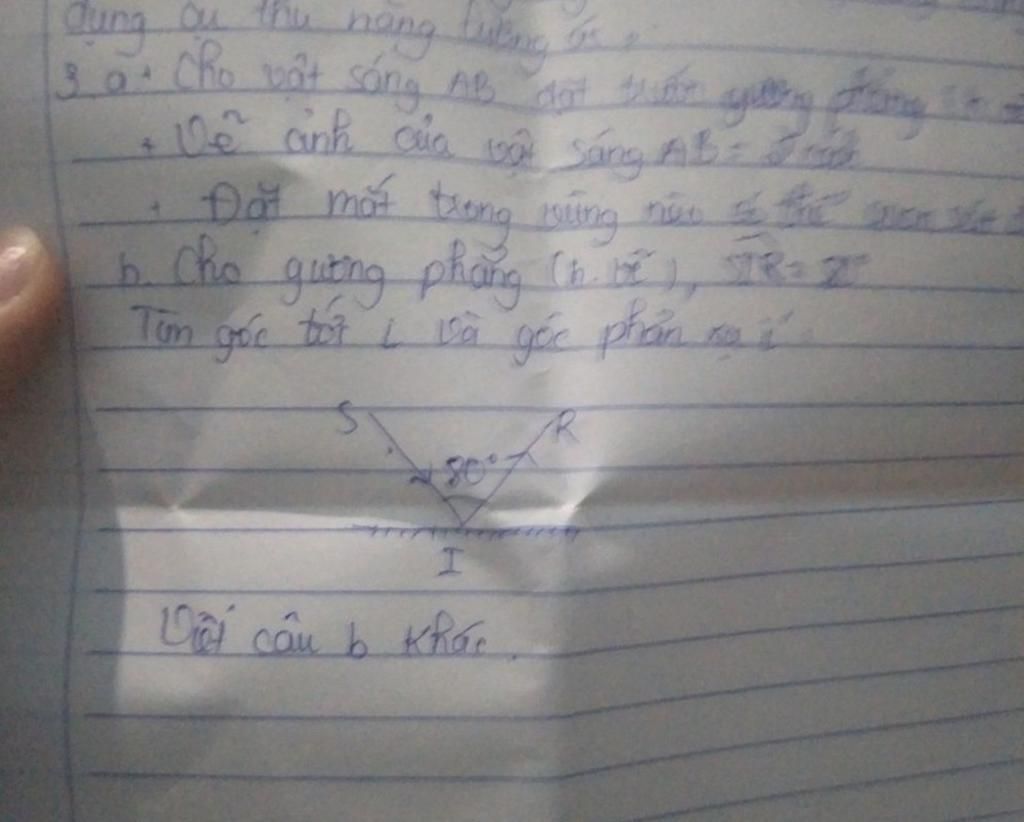 dụng cụ thu năng lượng
3 a. Cho vật sáng AB đặt trước gương phẳng
+ Vẽ ảnh của vật sáng AB =
+ Đặt mắt trong vùng nào
b. Cho gương phẳng (h.vẽ),
Tìm góc tới i và góc phản xạ i'
S R
80°
I
Viết câu b khác.